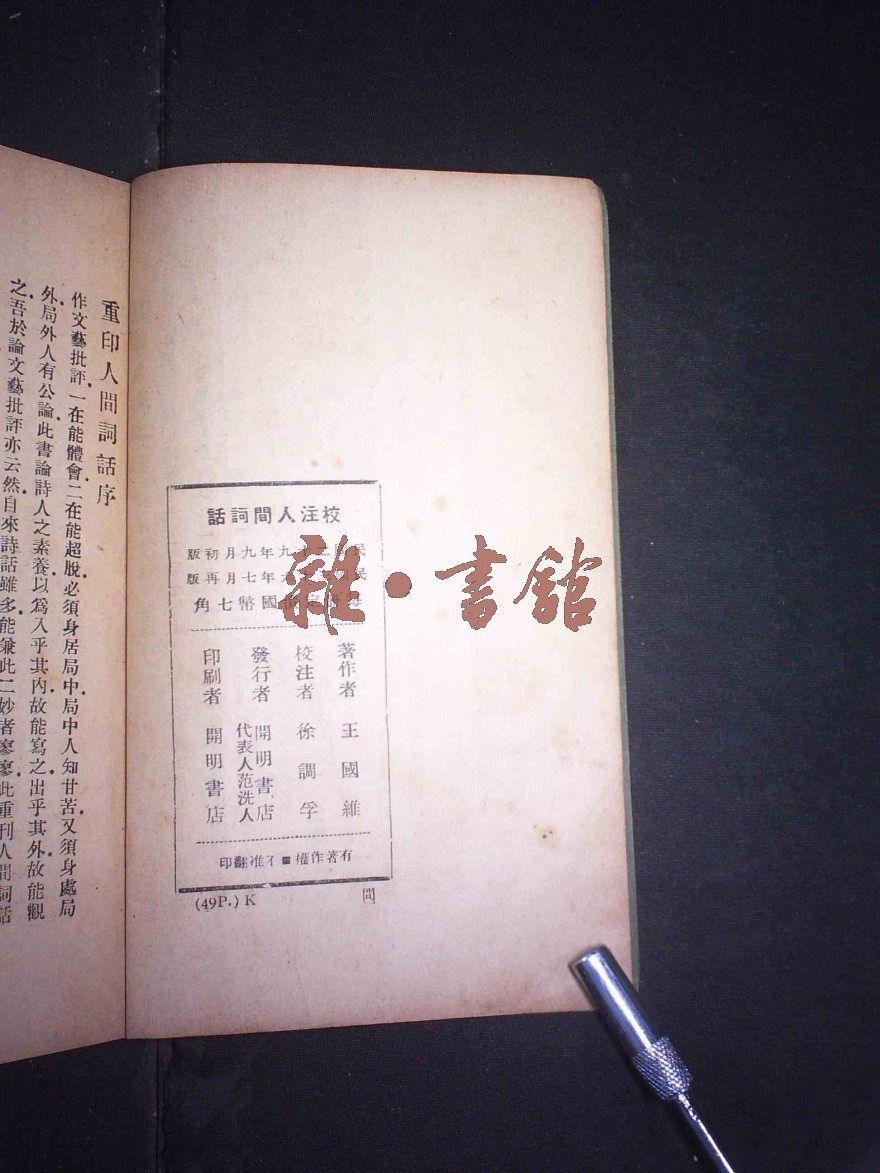 校注人間詞話
民國二十九年九月初版
民國三十六年七月再版
每冊定價國幣七角
著作者 王國維
校注者 徐調孚
發行者 開明書店
代表人范洗人
印刷者 開明書店
有著作權■不准翻印
(49P.) K
間
雜·書館
重印人間詞話序
作文藝批評.一在能體會.二在能超脫.必須身居局中.局中人知甘苦.又須身處局
外.局外人有公論.此書論詩人之素養.以爲入乎其內.故能寫之.出乎其外.故能觀
之.吾於論文藝批評亦云然.自來詩話雖多.能兼此二妙者寥寥.此重刊人間詞話